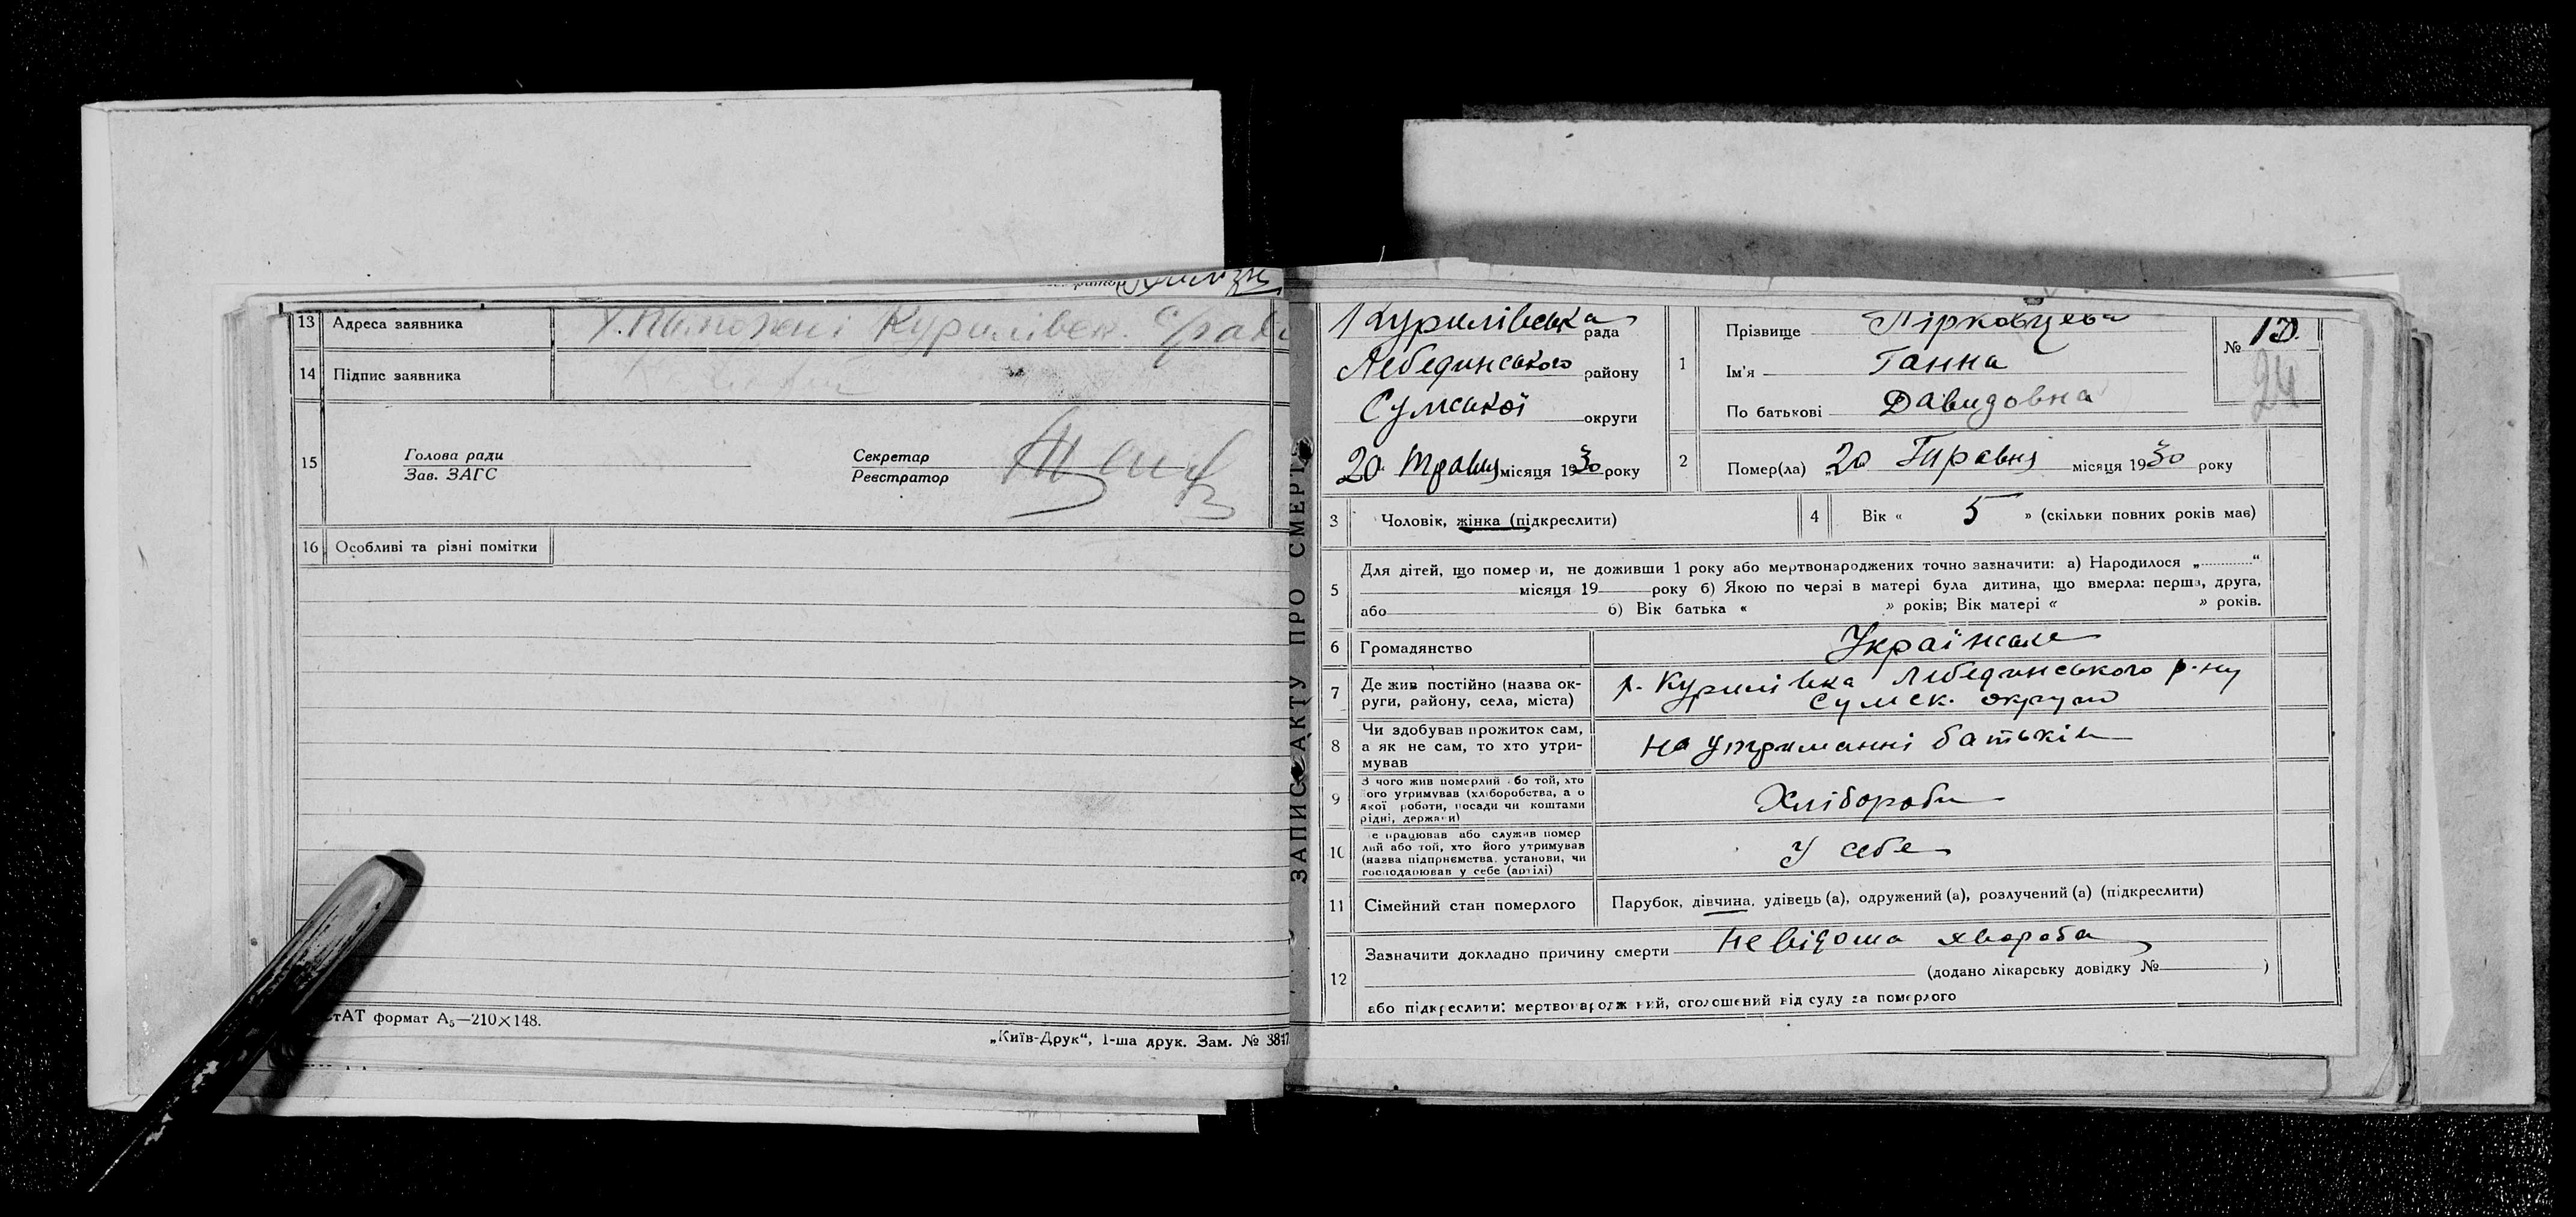 13 Адреса заявника Курилівськ. с/рад
14 Підпис заявника
15 Голова ради
Зав. ЗАГС
Секретар
Реєстратор
16 Особливі та різні помітки
стАТ формат А₅—210×148.
„Київ-Друк“, 1-ша друк. Зам. № 3817
ЗАПИС АКТУ ПРО СМЕРТЬ
Курилівська рада
Лебединського району
Сумської округи
20 Травня місяця 1930 року
1 Прізвище Пірковцева
Ім'я Ганна
По батькові Давидовна
№ 10.
24
2 Помер(ла) „20 Травня місяця 1930 року
3 Чоловік, жінка (підкреслити)
4 Вік « 5 » (скільки повних років має)
5 Для дітей, що помер и, не доживши 1 року або мертвонароджених точно зазначити: а) Народилося „ “
місяця 19 року б) Якою по черзі в матері була дитина, що вмерла: перша, друга,
або б) Вік батька « » років; Вік матері « » років.
6 Громадянство Українське
7 Де жив постійно (назва ок-
руги, району, села, міста) Курилівка Лебединського р-ну
Сумськ. округи
8 Чи здобував прожиток сам,
а як не сам, то хто утри-
мував на утриманні батьків
9 З чого жив померлий або той, хто
його утримував (хліборобства, а о
якої роботи, посади чи коштами
рідні, держави) Хлібороби
10 е працював або служив помер
лий або той, хто його утримував
(назва підприємства, установи, чи
господарював у себе (артілі) у себе
11 Сімейний стан померлого Парубок, дівчина, удівець (а), одружений (а), розлучений (а) (підкреслити)
12 Зазначити докладно причину смерти невідома хвороба
(додано лікарську довідку № )
або підкреслити: мертвонародж ний, оголошений від суду за померлого